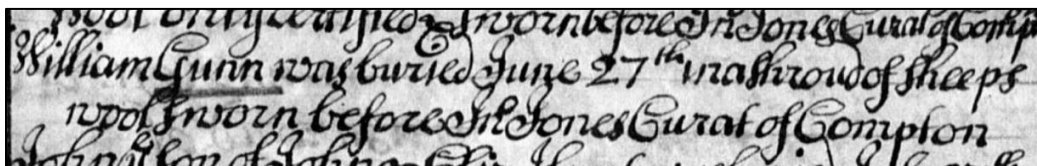 wool only certified & sworn before Jn Jones Curat of Comp
William Gunn was buried June 27th in a shroud of sheeps
wool sworn before Jn Jones Curat of Compton
John son of John